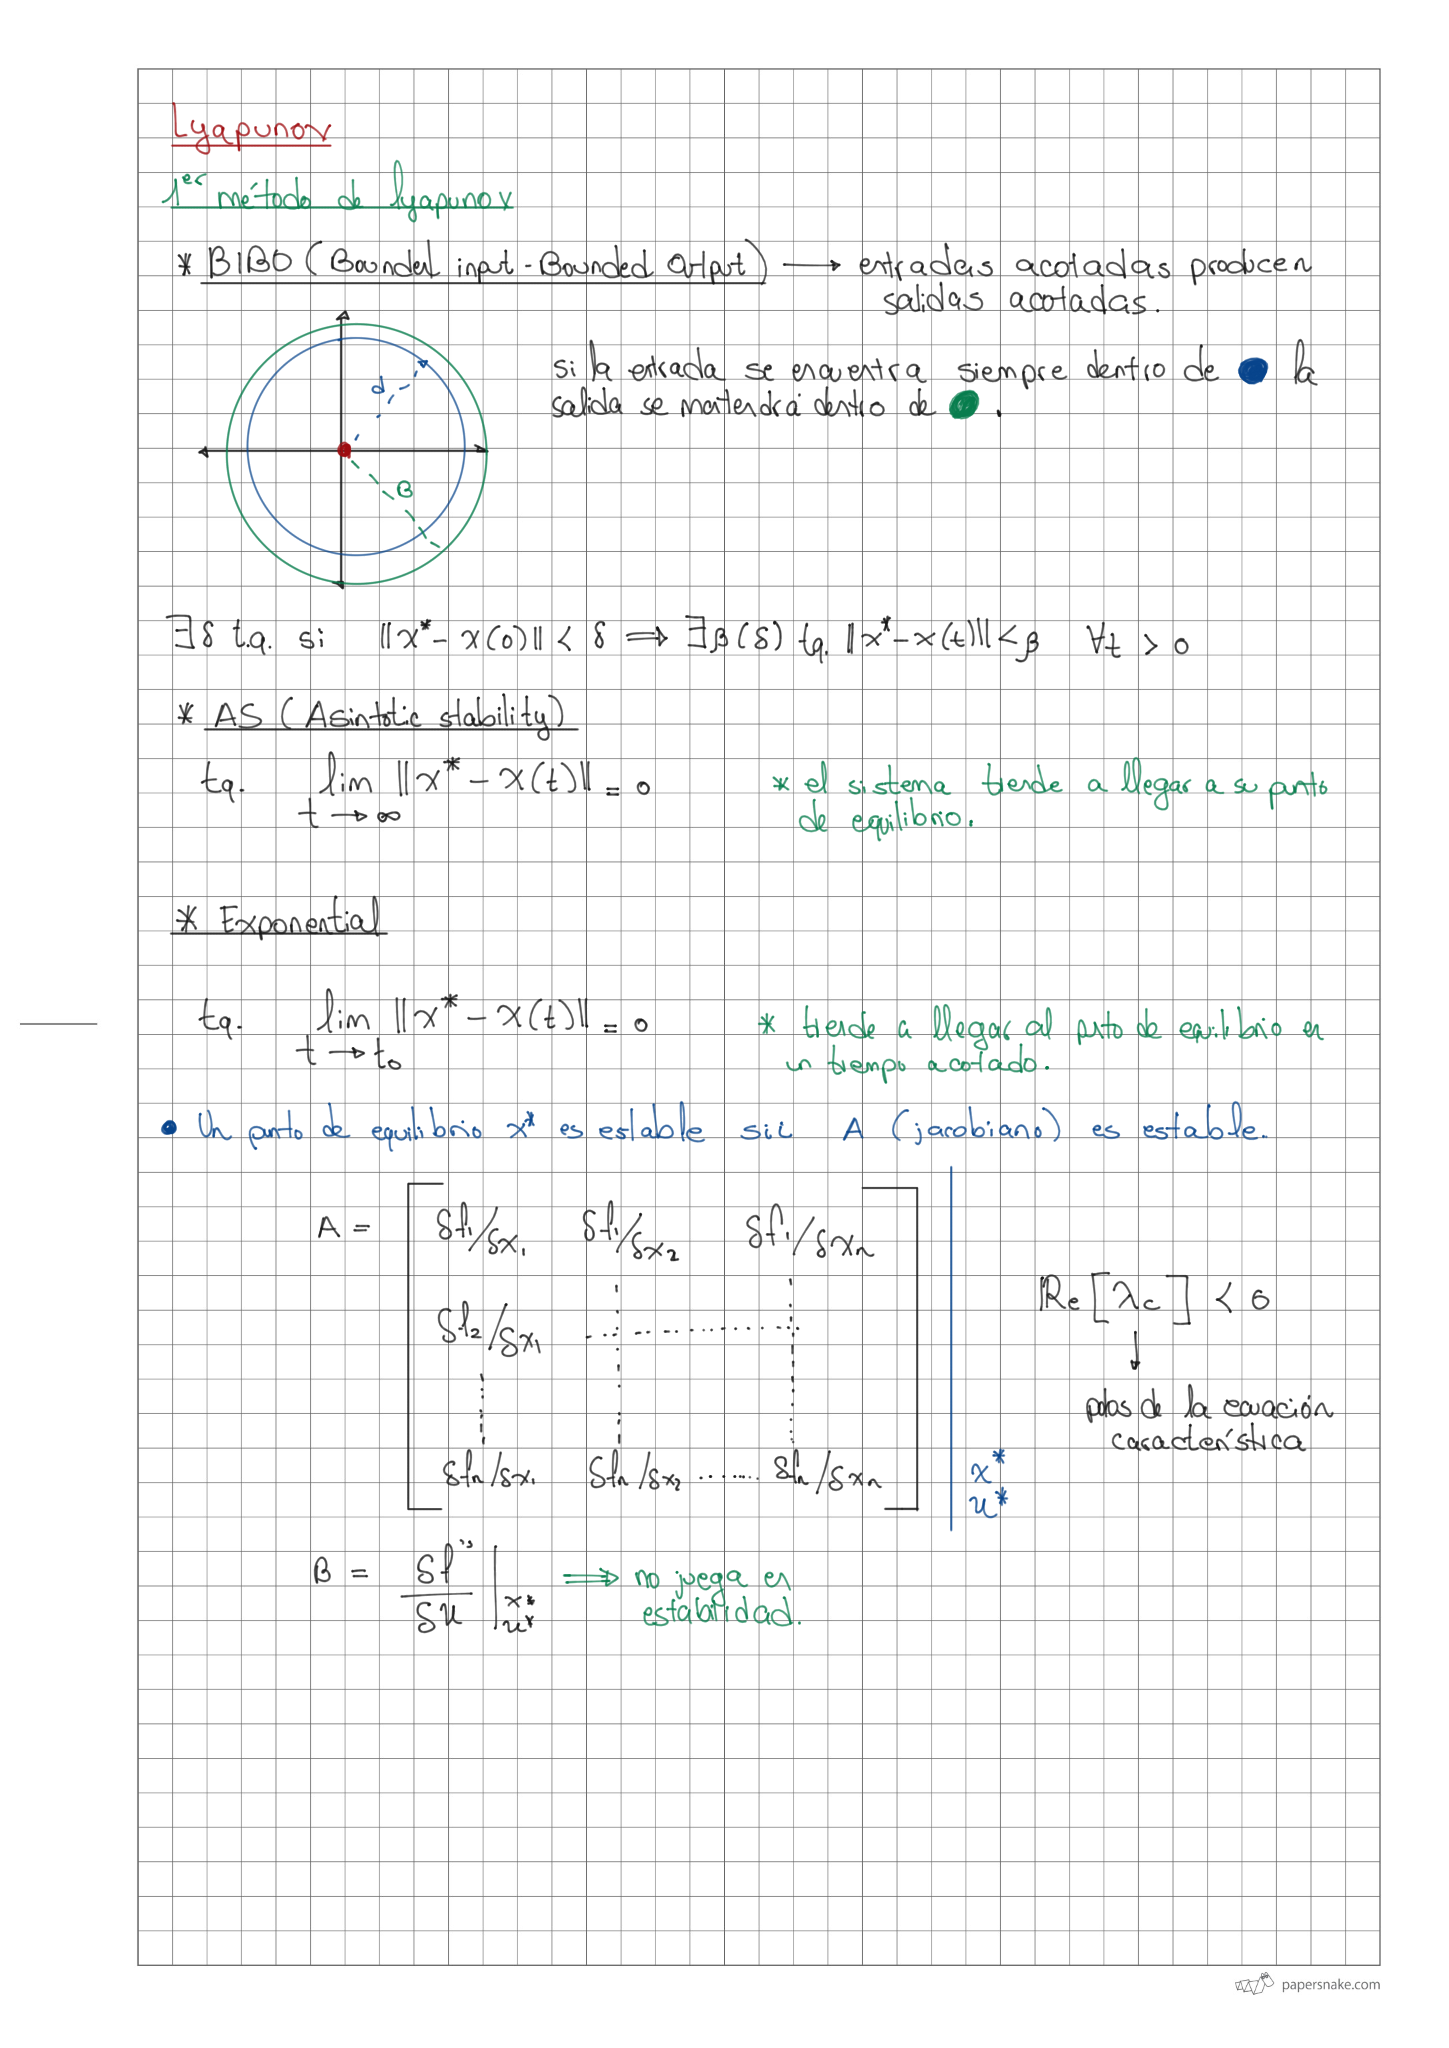 Lyapunov
1er método de lyapunov
* BIBO (Bounded input - Bounded Output) → entradas acotadas producen
salidas acotadas.
si la entrada se encuentra siempre dentro de ● la
salida se mantendrá dentro de ● .
d
B
∃δ t.q. si ||x* - x(0)|| < δ ⇒ ∃β(δ) tq. ||x* - x(t)|| < β ∀t > 0
* AS (Asintotic stability)
tq. lim ||x* - x(t)|| = 0
t → ∞
* el sistema tiende a llegar a su punto
de equilibrio.
* Exponential
tq. lim ||x* - x(t)|| = 0
t → t₀
* tiende a llegar al punto de equilibrio en
un tiempo acotado.
● Un punto de equilibrio x* es estable sii A (jacobiano) es estable.
A = δf₁/δx₁ δf₁/δx₂ δf₁/δxₙ
δf₂/δx₁
δfₙ/δx₁ δfₙ/δx₂ ....... δfₙ/δxₙ
x*
u*
Re[λc] < 0
↓
polos de la ecuación
característica
B = δf''/δu | x* u* ⇒ no juega en
estabilidad.
papersnake.com